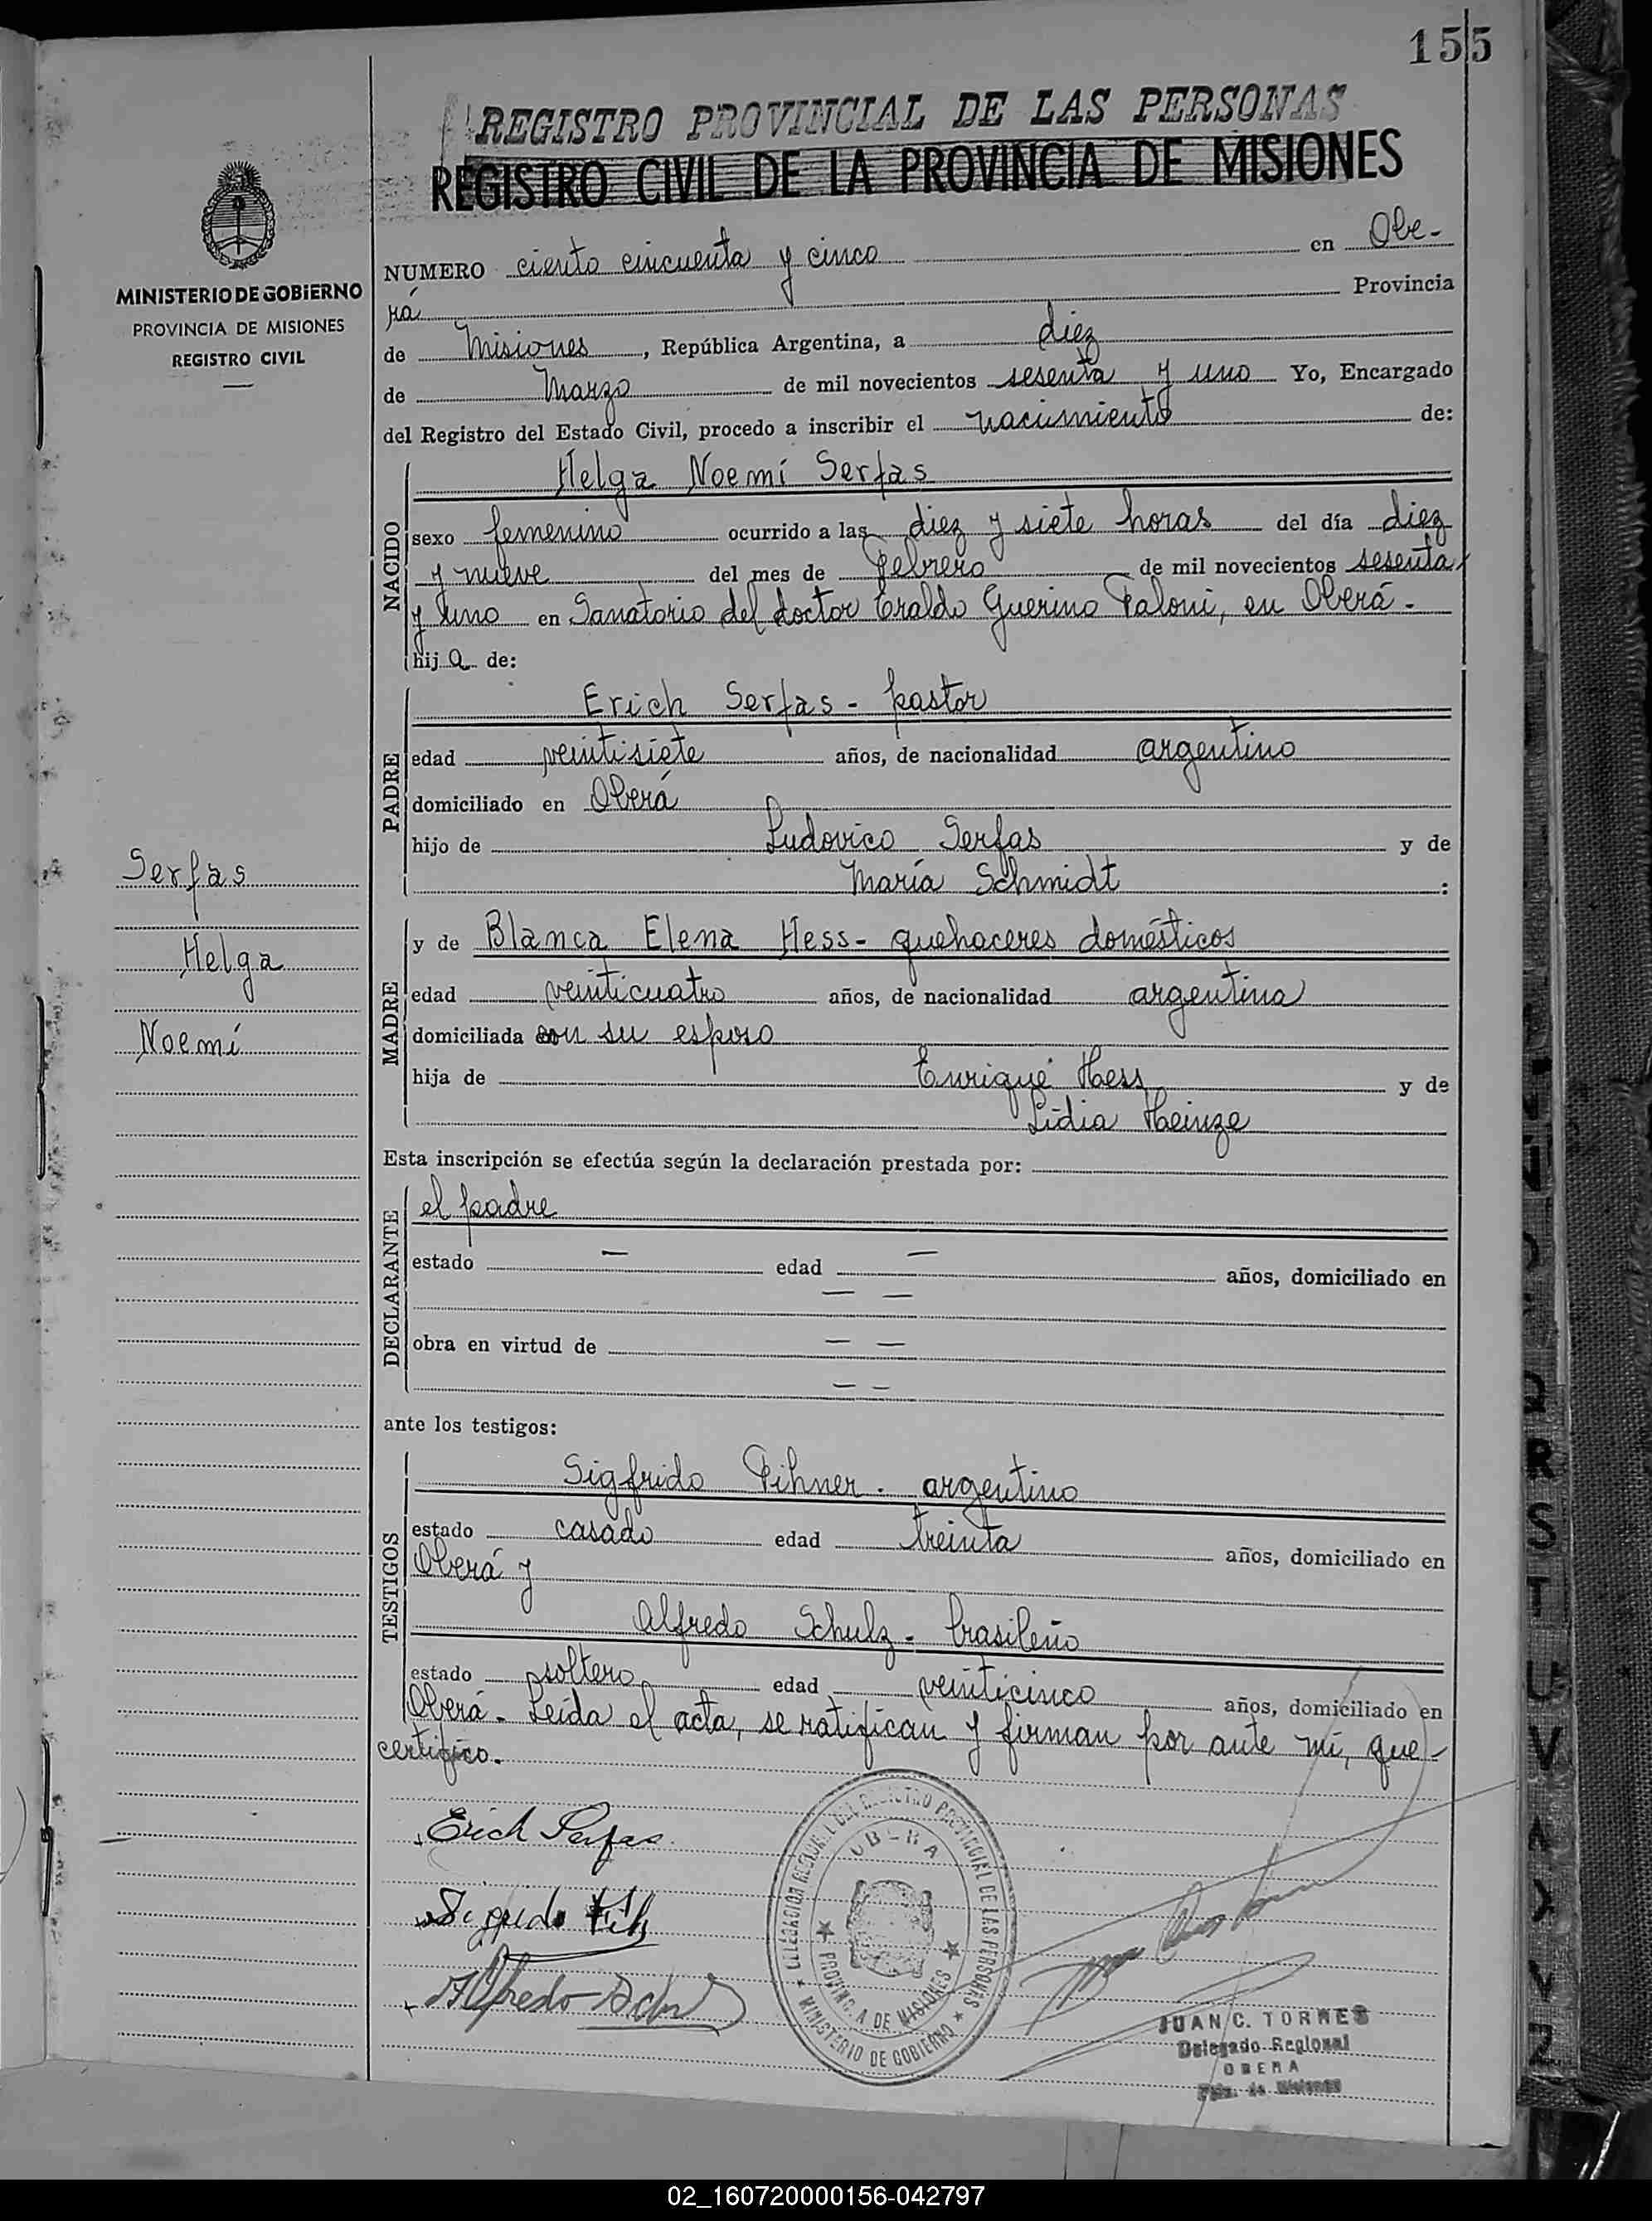 155
REGISTRO PROVINCIAL DE LAS PERSONAS
REGISTRO CIVIL DE LA PROVINCIA DE MISIONES
MINISTERIO DE GOBIERNO
PROVINCIA DE MISIONES
REGISTRO CIVIL
NUMERO ciento cincuenta y cinco en Obe-
rá Provincia
de Misiones, República Argentina, a diez
de Marzo de mil novecientos sesenta y uno Yo, Encargado
del Registro del Estado Civil, procedo a inscribir el nacimiento de:
NACIDO
Helga Noemí Serfas
sexo femenino ocurrido a las diez y siete horas del día diez
y nueve del mes de Febrero de mil novecientos sesenta
y uno en Sanatorio del doctor Eraldo Guerino Paloni, en Oberá.-
hija de:
PADRE
Erich Serfas - pastor
edad veintisiete años, de nacionalidad argentino
domiciliado en Oberá
hijo de Ludovico Serfas y de
María Schmidt :
MADRE
y de Blanca Elena Hess - quehaceres domésticos
edad veinticuatro años, de nacionalidad argentina
domiciliada con su esposo
hija de Enrique Hess y de
Lidia Heinze
Serfas
Helga
Noemí
Esta inscripción se efectúa según la declaración prestada por:
DECLARANTE
el padre
estado — edad — años, domiciliado en
— —
obra en virtud de — —
— —
ante los testigos:
TESTIGOS
Sigfrido Pihner. argentino
estado casado edad treinta años, domiciliado en
Oberá y
Alfredo Schulz - brasileño
estado soltero edad veinticinco años, domiciliado en
Oberá - Leída el acta, se ratifican y firman por ante mí, que
certifico.
Erich Serfas
Alfredo
DELEGACION REGIONAL DEL REGISTRO PROVINCIAL DE LAS PERSONAS
OBERA
PROVINCIA DE MISIONES
MINISTERIO DE GOBIERNO
JUAN C. TORRES
Delegado Regional
OBERA
Pcia. de Misiones
R
S
T
U
V
Z
02_160720000156-042797